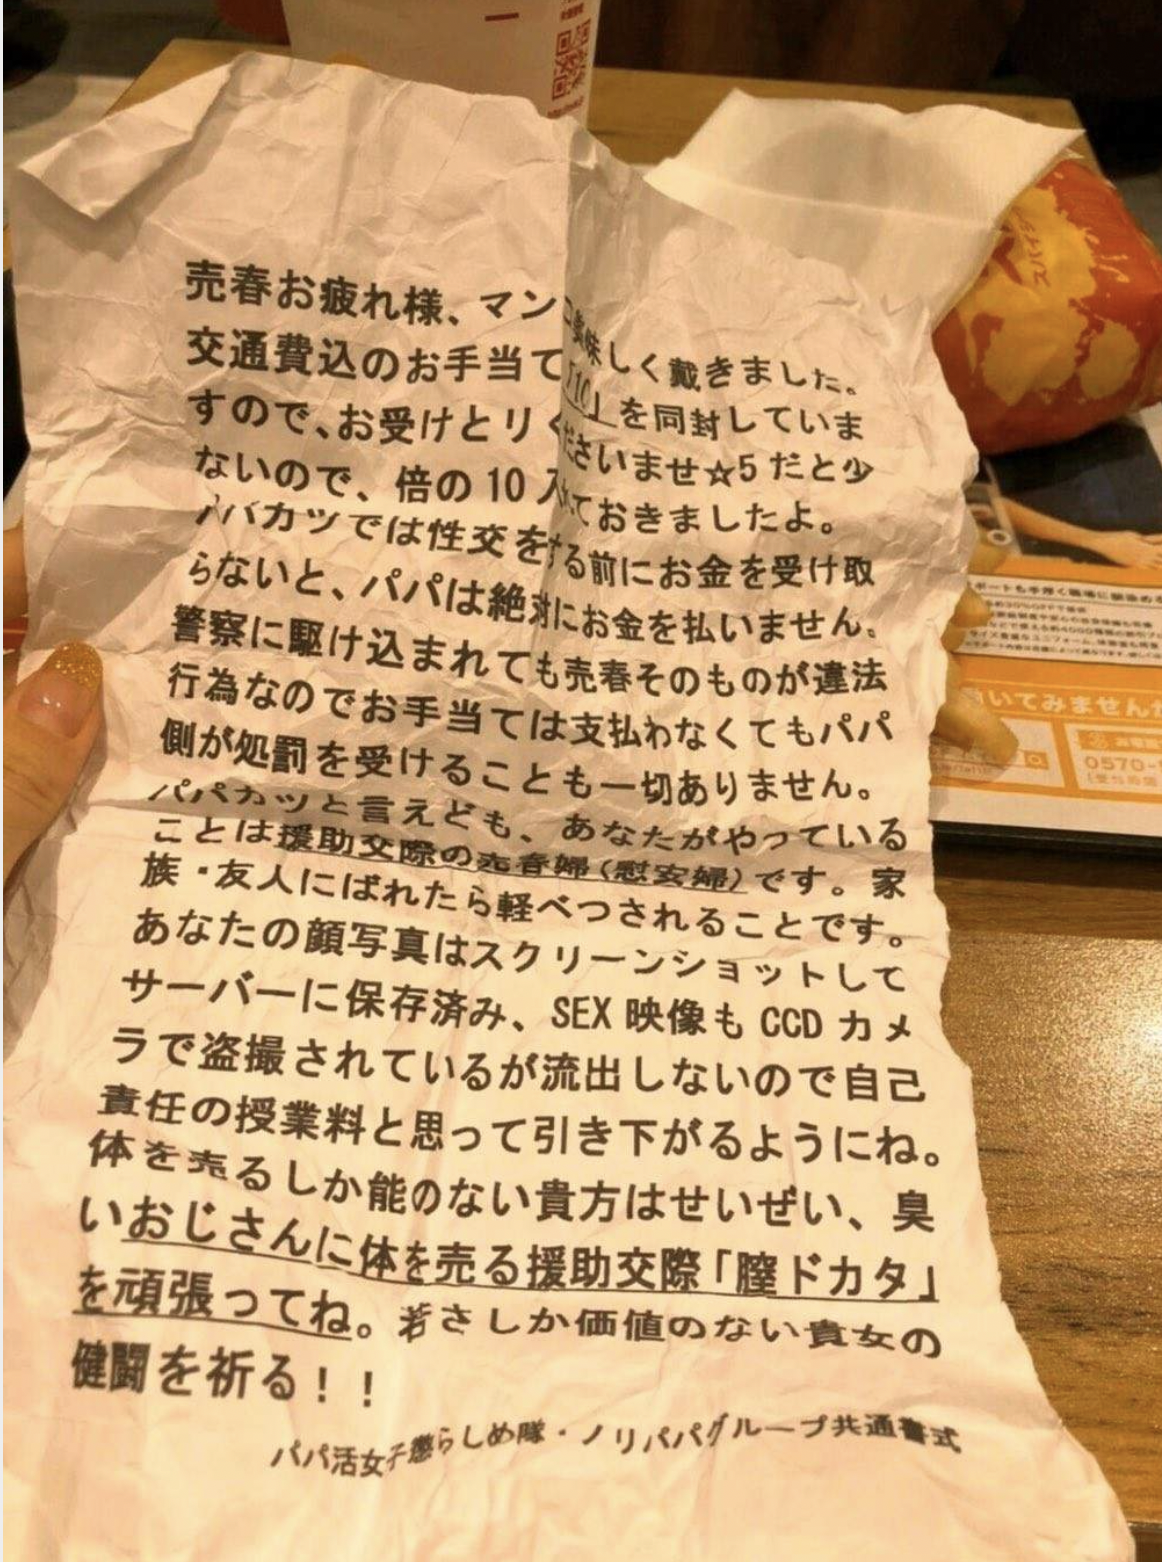 売春お疲れ様、マンコ美味しく戴きました。
交通費込のお手当て「10」を同封していま
すので、お受けとりくださいませ☆5だと少
ないので、倍の10入れておきましたよ。
パパカツでは性交をする前にお金を受け取
らないと、パパは絶対にお金を払いません。
警察に駆け込まれても売春そのものが違法
行為なのでお手当ては支払わなくてもパパ
側が処罰を受けることも一切ありません。
パパカツと言えども、あなたがやっている
ことは援助交際の売春婦(慰安婦)です。家
族・友人にばれたら軽べつされることです。
あなたの顔写真はスクリーンショットして
サーバーに保存済み、SEX映像もCCDカメ
ラで盗撮されているが流出しないので自己
責任の授業料と思って引き下がるようにね。
体を売るしか能のない貴方はせいぜい、臭
いおじさんに体を売る援助交際「膣ドカタ」
を頑張ってね。若さしか価値のない貴女の
健闘を祈る!!
パパ活女子懲らしめ隊・ノリパパグループ共通書式
ポートも手厚く職場に馴染める
いてみません
0570-